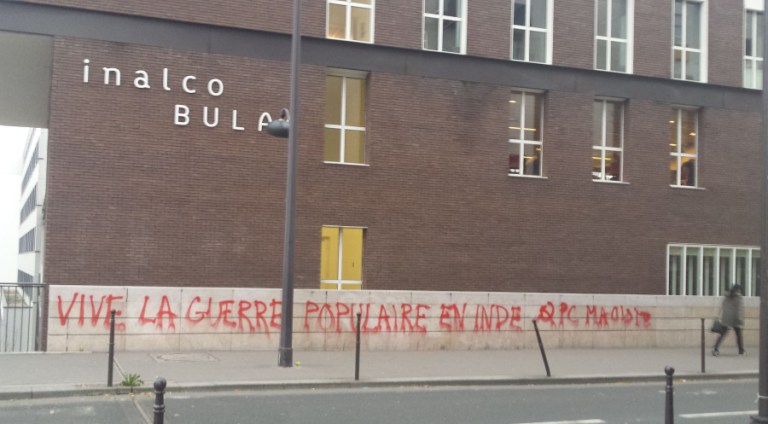 inalco
BULA
VIVE LA GUERRE POPULAIRE EN INDE PC